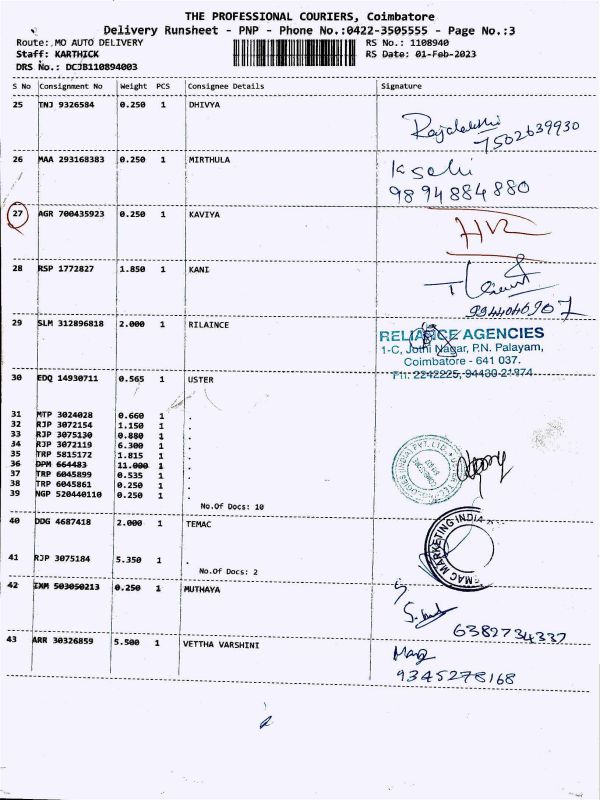 THE PROFESSIONAL COURIERS, Coimbatore
Delivery Runsheet - PNP - Phone No.:0422-3505555 - Page No.:3
Route:.MO AUTO DELIVERY RS No.: 1108940
Staff: KARTHICK RS Date: 01-Feb-2023
DRS No.: DCJB110894003
S No Consignment No Weight PCS Consignee Details Signature
25 TNJ 9326584 0.250 1 DHIVYA
7502639930
26 MAA 293168383 0.250 1 MIRTHULA
9894884880
27 AGR 700435923 0.250 1 KAVIYA
28 RSP 1772827 1.850 1 KANI
9944046907
29 SLM 312896818 2.000 1 RILAINCE
RELIANCE AGENCIES
1-C, Jothi Nagar, P.N. Palayam,
Coimbatore - 641 037.
Ph: 2242225, 94430 21874
30 EDQ 14930711 0.565 1 USTER
31 MTP 3024028 0.660 1 .
32 RJP 3072154 1.150 1 .
33 RJP 3075130 0.880 1 .
34 RJP 3072119 6.300 1 .
35 TRP 5815172 1.815 1 .
36 DPM 664483 11.000 1 .
37 TRP 6045899 0.535 1 .
38 TRP 6045861 0.250 1 .
39 NGP 520440110 0.250 1 .
No.Of Docs: 10
40 DDG 4687418 2.000 1 TEMAC
MAC MARKETING INDIA
41 RJP 3075184 5.350 1 .
No.Of Docs: 2
42 IXM 503050213 0.250 1 MUTHAYA
6382734337
43 ARR 30326859 5.500 1 VETTHA VARSHINI
9345278168